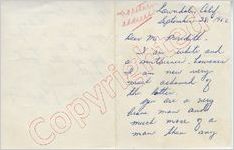 Lawndale, Calif
September 28, 1962
Dear Mr. Meredith
I am white and
a southerner, however
I am now very
much ashamed of
the latter.
You are a very
brave man and
much more of a
man than any
Copyright